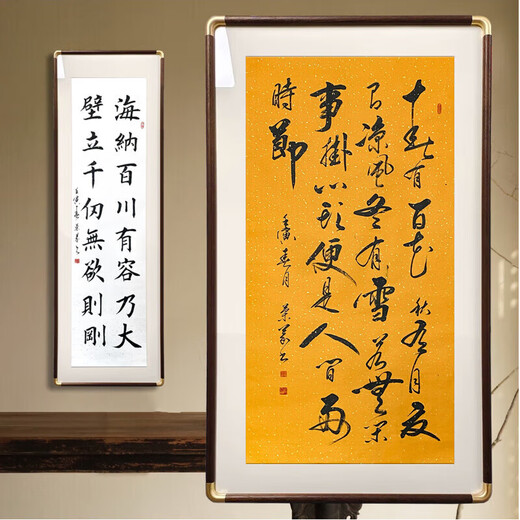 海納百川有容乃大
壁立千仞無欲則剛
春有百花秋有月夏
有涼風冬有雪若無閑
事掛心頭便是人間好
時節
春月